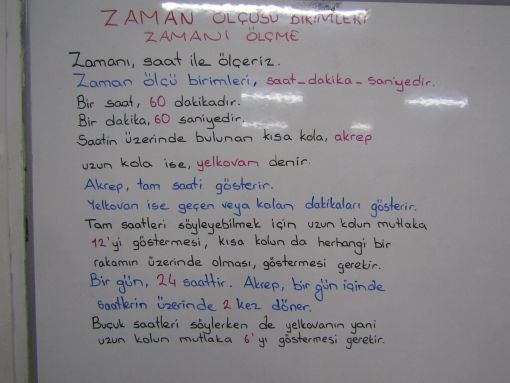 ZAMAN ÖLÇÜSÜ BİRİMLERİ
ZAMANI ÖLÇME
Zamanı, saat ile ölçeriz.
Zaman ölçü birimleri, saat-dakika-saniyedir.
Bir saat, 60 dakikadır.
Bir dakika, 60 saniyedir.
Saatin üzerinde bulunan kısa kola, akrep
uzun kola ise, yelkovan denir.
Akrep, tam saati gösterir.
Yelkovan ise geçen veya kalan dakikaları gösterir.
Tam saatleri söyleyebilmek için uzun kolun mutlaka
12'yi göstermesi, kısa kolun da herhangi bir
rakamın üzerinde olması, göstermesi gerekir.
Bir gün, 24 saattir. Akrep, bir gün içinde
saatlerin üzerinde 2 kez döner.
Buçuk saatleri söylerken de yelkovanın yani
uzun kolun mutlaka 6'yı göstermesi gerekir.